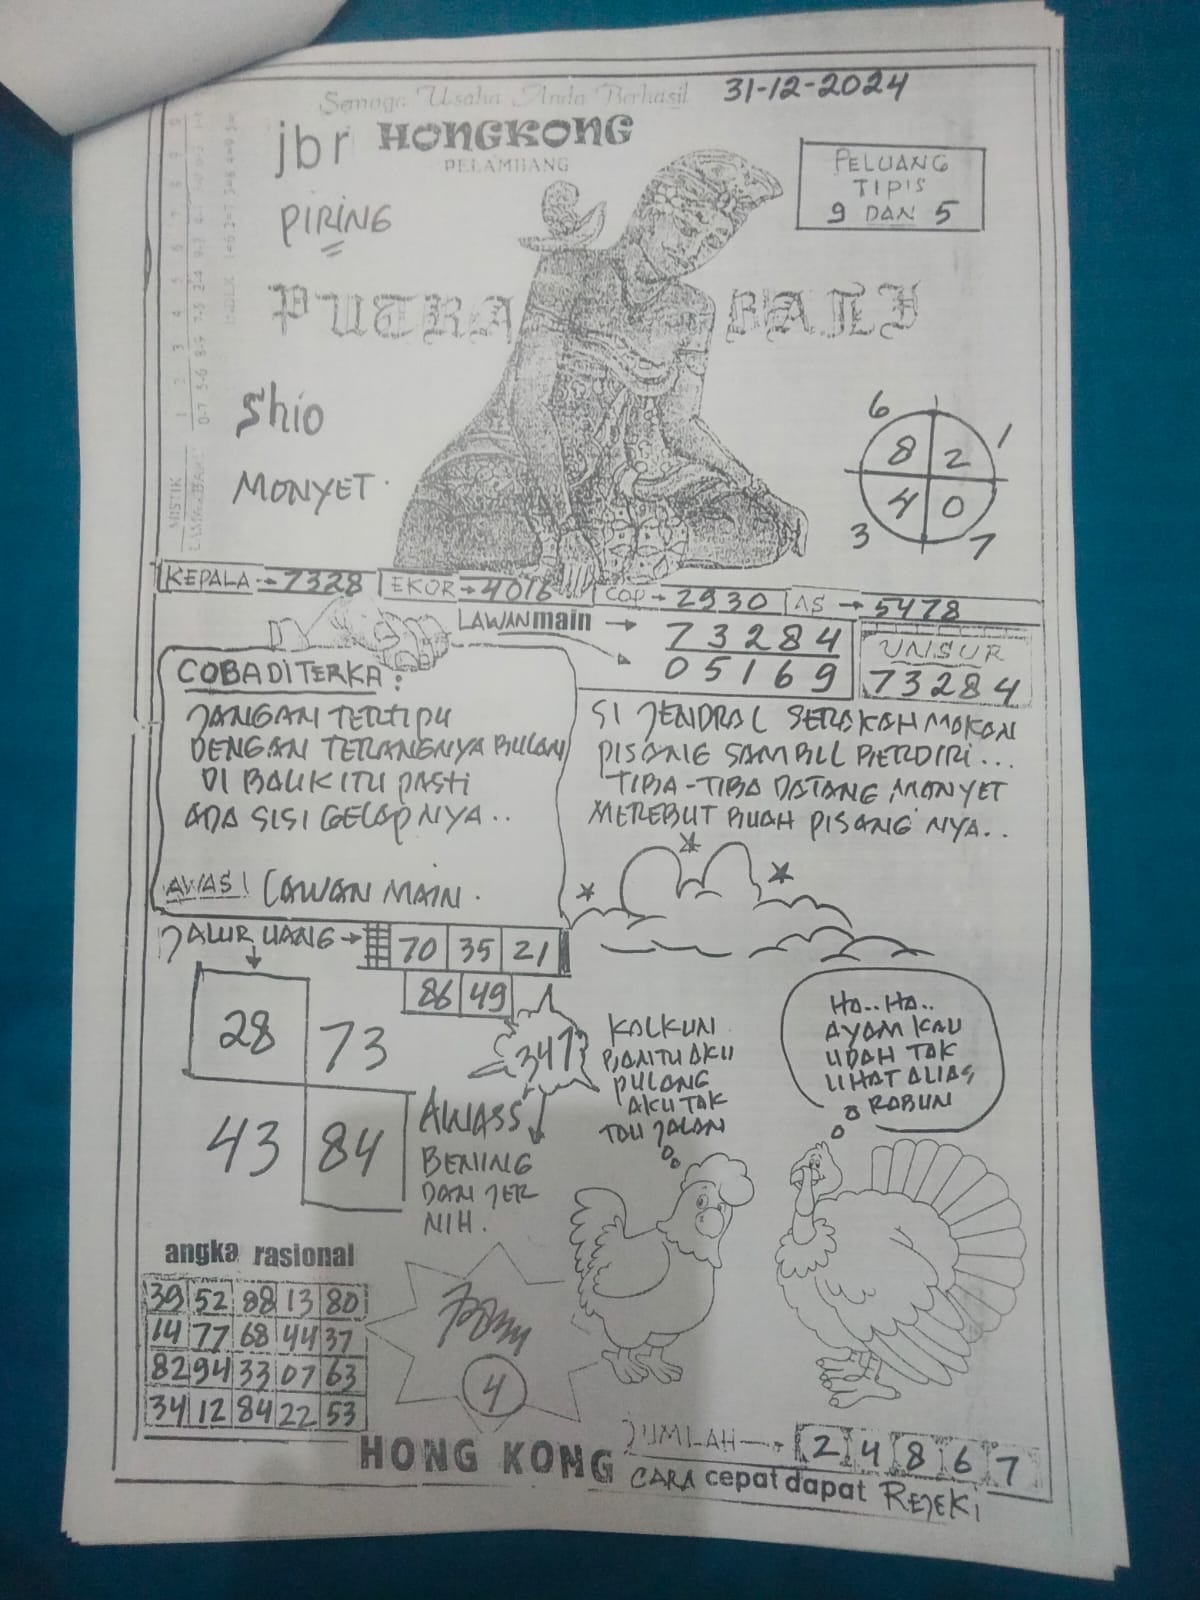 Semoga Usaha Anda Berhasil
31-12-2024
jbr HONGKONG
PELAMBANG
PELUANG
TIPIS
9 DAN 5
PIRING
PUTRA BALI
Shio
MONYET
6
1
8 2
4 0
3
7
MISTIK
KEPALA → 7328
EKOR → 4016
COP → 2930
AS → 5478
LAWAN main → 73284
05169
UNSUR
73284
COBA DITERKA :
JANGAN TERTIPU
DENGAN TERANGNYA BULAN
DI BALIK ITU PASTI
ADA SISI GELAPNYA..
AWAS! LAWAN MAIN.
SI JENDRAL SERAKAH MAKAN
PISANG SAMBIL BERDIRI...
TIBA-TIBA DATANG MONYET
MEREBUT BUAH PISANG NYA..
JALUR UANG → 70 35 21
86 49
28 73
43 84
347
AWASS
BENING
DAN JER
NIH.
KALKUN
BANTU AKU
PULANG
AKU TAK
TAU JALAN
HA..HA..
AYAM KAU
UDAH TAK
LIHAT ALIAS
RABUN
angka rasional
39 52 98 13 80
14 77 68 44 37
82 94 33 07 63
34 12 84 22 53
4
HONG KONG
JUMLAH → 2 4 8 6 7
CARA cepat dapat REJEKI